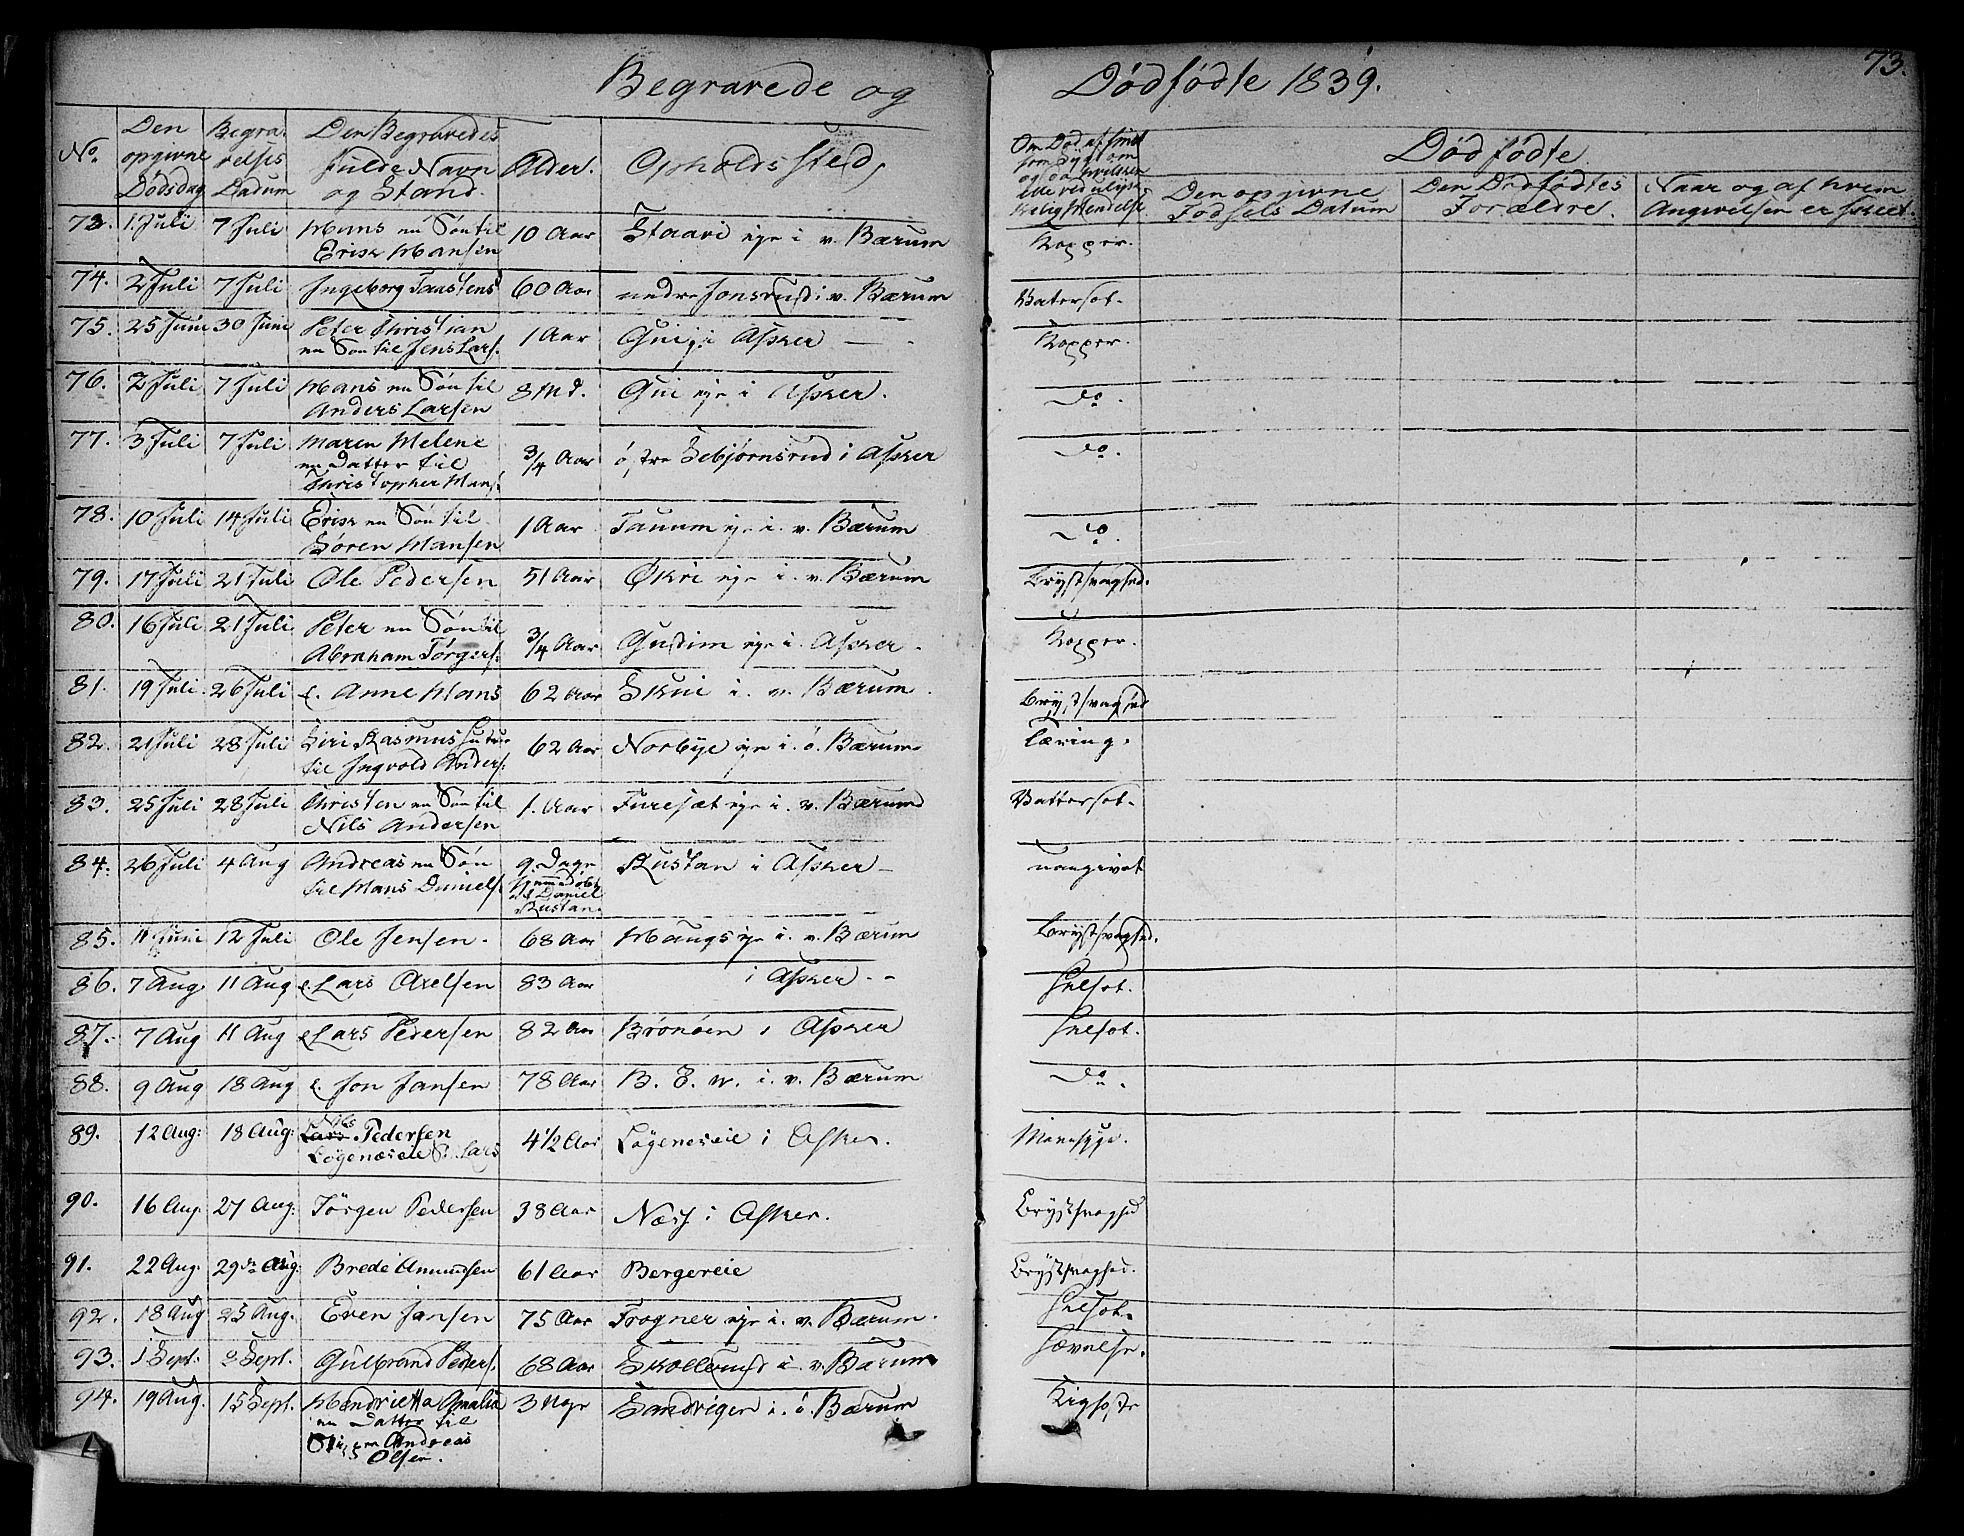 Begravede og Dødfødte 1839. 73.
No. Den opgivne Dødsdag Begravelses Datum Den Begravedes fulde Navn og Stand. Alder. Opholds Sted, Om Død af smit som Sygdom Dødfødte
Den opgivne Fødsels Datum Den Dødfødtes Forældre. Naar og af hvem Angivelsen er skeet.
73. 1. Juli 7 Juli Hans en Søn til 10 Aar Staavi eje i v. Bærum Kopper.
Erik Hansen
74. 2 Juli 7 Juli Ingeborg Taastens 60 Aar nedre Jonsrud i v. Bærum Vatersot.
75. 25 Juni 30 Juni Peter Christian 1 Aar Gui i Asker Kopper.
en Søn til Jens Lars.
76. 2 Juli 7 Juli Hans en Søn til 8 Md. Gui eje i Asker. Do.
Anders Larsen
77. 3 Juli 7 Juli Maren Helene 3/4 Aar østre Sebjørnsrud i Asker Do.
en Datter til
Christopher Hans.
78. 10 Juli 14 Juli Erik en Søn til 1 Aar Tanum eje i. v. Bærum Do.
Søren Hansen
79. 17 Juli 21 Juli Ole Pedersen 51 Aar Økri eje i. v. Bærum Brystsvaghed.
80. 16 Juli 21 Juli Peter en Søn til 3/4 Aar Gudim eje i. Asker. Kopper.
Abraham Tørgers.
81. 19 Juli 26 Juli e. Anne Hans 62 Aar Skui i. v. Bærum. Brystsvaghed
82. 21 Juli 28 Juli Siri Rasmus 62 Aar Norbye eje i. ø. Bærum Tæring.
til Ingvold Anders.
83. 25 Juli 28 Juli Christen en Søn til 1. Aar Furesæt eje i. v. Bærum Vattersot.
Nils Andersen
84. 26 Juli 4 Aug Andreas en Søn 9 Dage Rustan i Asker uangivet
til Hans Daniels. Hjemmedøbt
af Daniel
Rustan.
85. 11 Juni 12 Juli Ole Jensen. 68 Aar Haugs eje i. v. Bærum Brystsvaghed.
86. 7 Aug. 11 Aug e. Lars Axelsen 83 Aar i Asker Helsot.
87. 7 Aug 11 Aug e. Lars Pedersen 82 Aar Brønøen i Asker Helsot.
88. 9 Aug 18 Aug e. Jon Jansen 78 Aar B. E. W. i. v. Bærum Do.
89. 12 Aug: 18 Aug: Nils Lars Pedersen 4 1/2 Aar Løgeneseie i Asker.
Løgenæseie
90. 16 Aug. 27 Aug: Jørgen Pedersen 38 Aar Næss i Asker. Brystsvaghed
91. 22 Aug. 29de Aug: Brede Amundsen 61 Aar Bergereie Brystsvaghed.
92. 18 Aug 25 Aug. Even Jansen 75 Aar Frogner eje i. v. Bærum. Helsot.
93. 1 Sept: 2 Sept. Gulbrand Peders. 68 Aar Skollerud i. v. Bærum Hævelse.
94. 19 Aug. 15 Sept. Hendrietta Amalia 3 Uger Sandvigen i. ø. Bærum Kighoste
en Datter til
Andreas
Olsen.